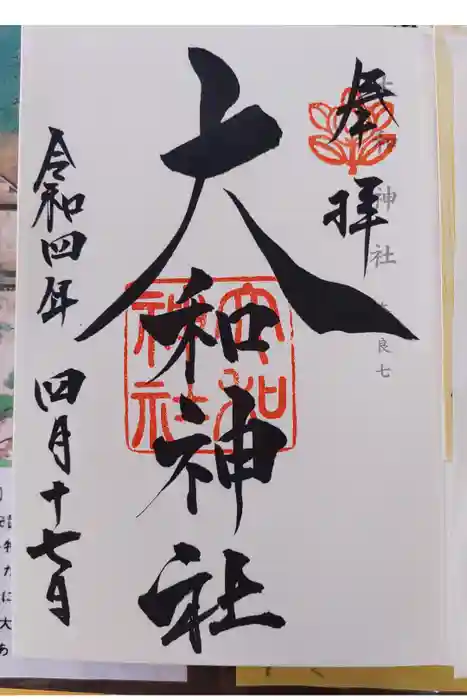 奉拝
大和神社
奈良七
大和神社
大和神社
令和四年 四月十七日